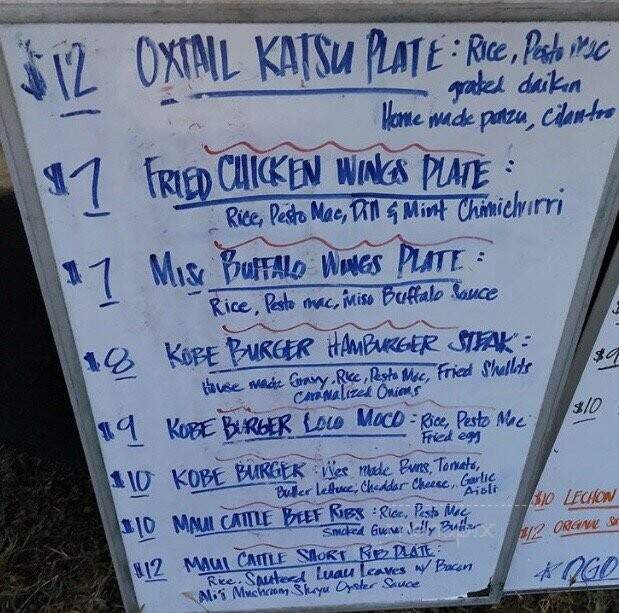 $12 OXTAIL KATSU PLATE : Rice, Pesto mac
grated daikon
Home made ponzu, cilantro
$7 FRIED CHICKEN WINGS PLATE :
Rice, Pesto Mac, Dill & Mint Chimichurri
$7 Miso BUFFALO WINGS PLATE :
Rice, Pesto mac, miso Buffalo Sauce
$8 KOBE BURGER HAMBURGER STEAK :
House made Gravy, Rice, Pesto Mac, Fried Shallots
Caramalized Onions
$9 KOBE BURGER LOCO MOCO - Rice, Pesto Mac
Fried egg
$10 KOBE BURGER : made Buns, Tomato,
Butter Lettuce, Cheddar Cheese, Garlic
Aioli
$10 MAUI CATTLE BEEF RIBS : Rice, Pesto Mac
Smoked Guava Jelly Butter
$12 MAUI CATTLE SHORT RIB PLATE :
Rice, Sauteed Luau Leaves w/ Bacon
Ali'i Mushroom Shoyu Oyster Sauce
$9
$10
$10 LECHON
$12 ORIGINAL